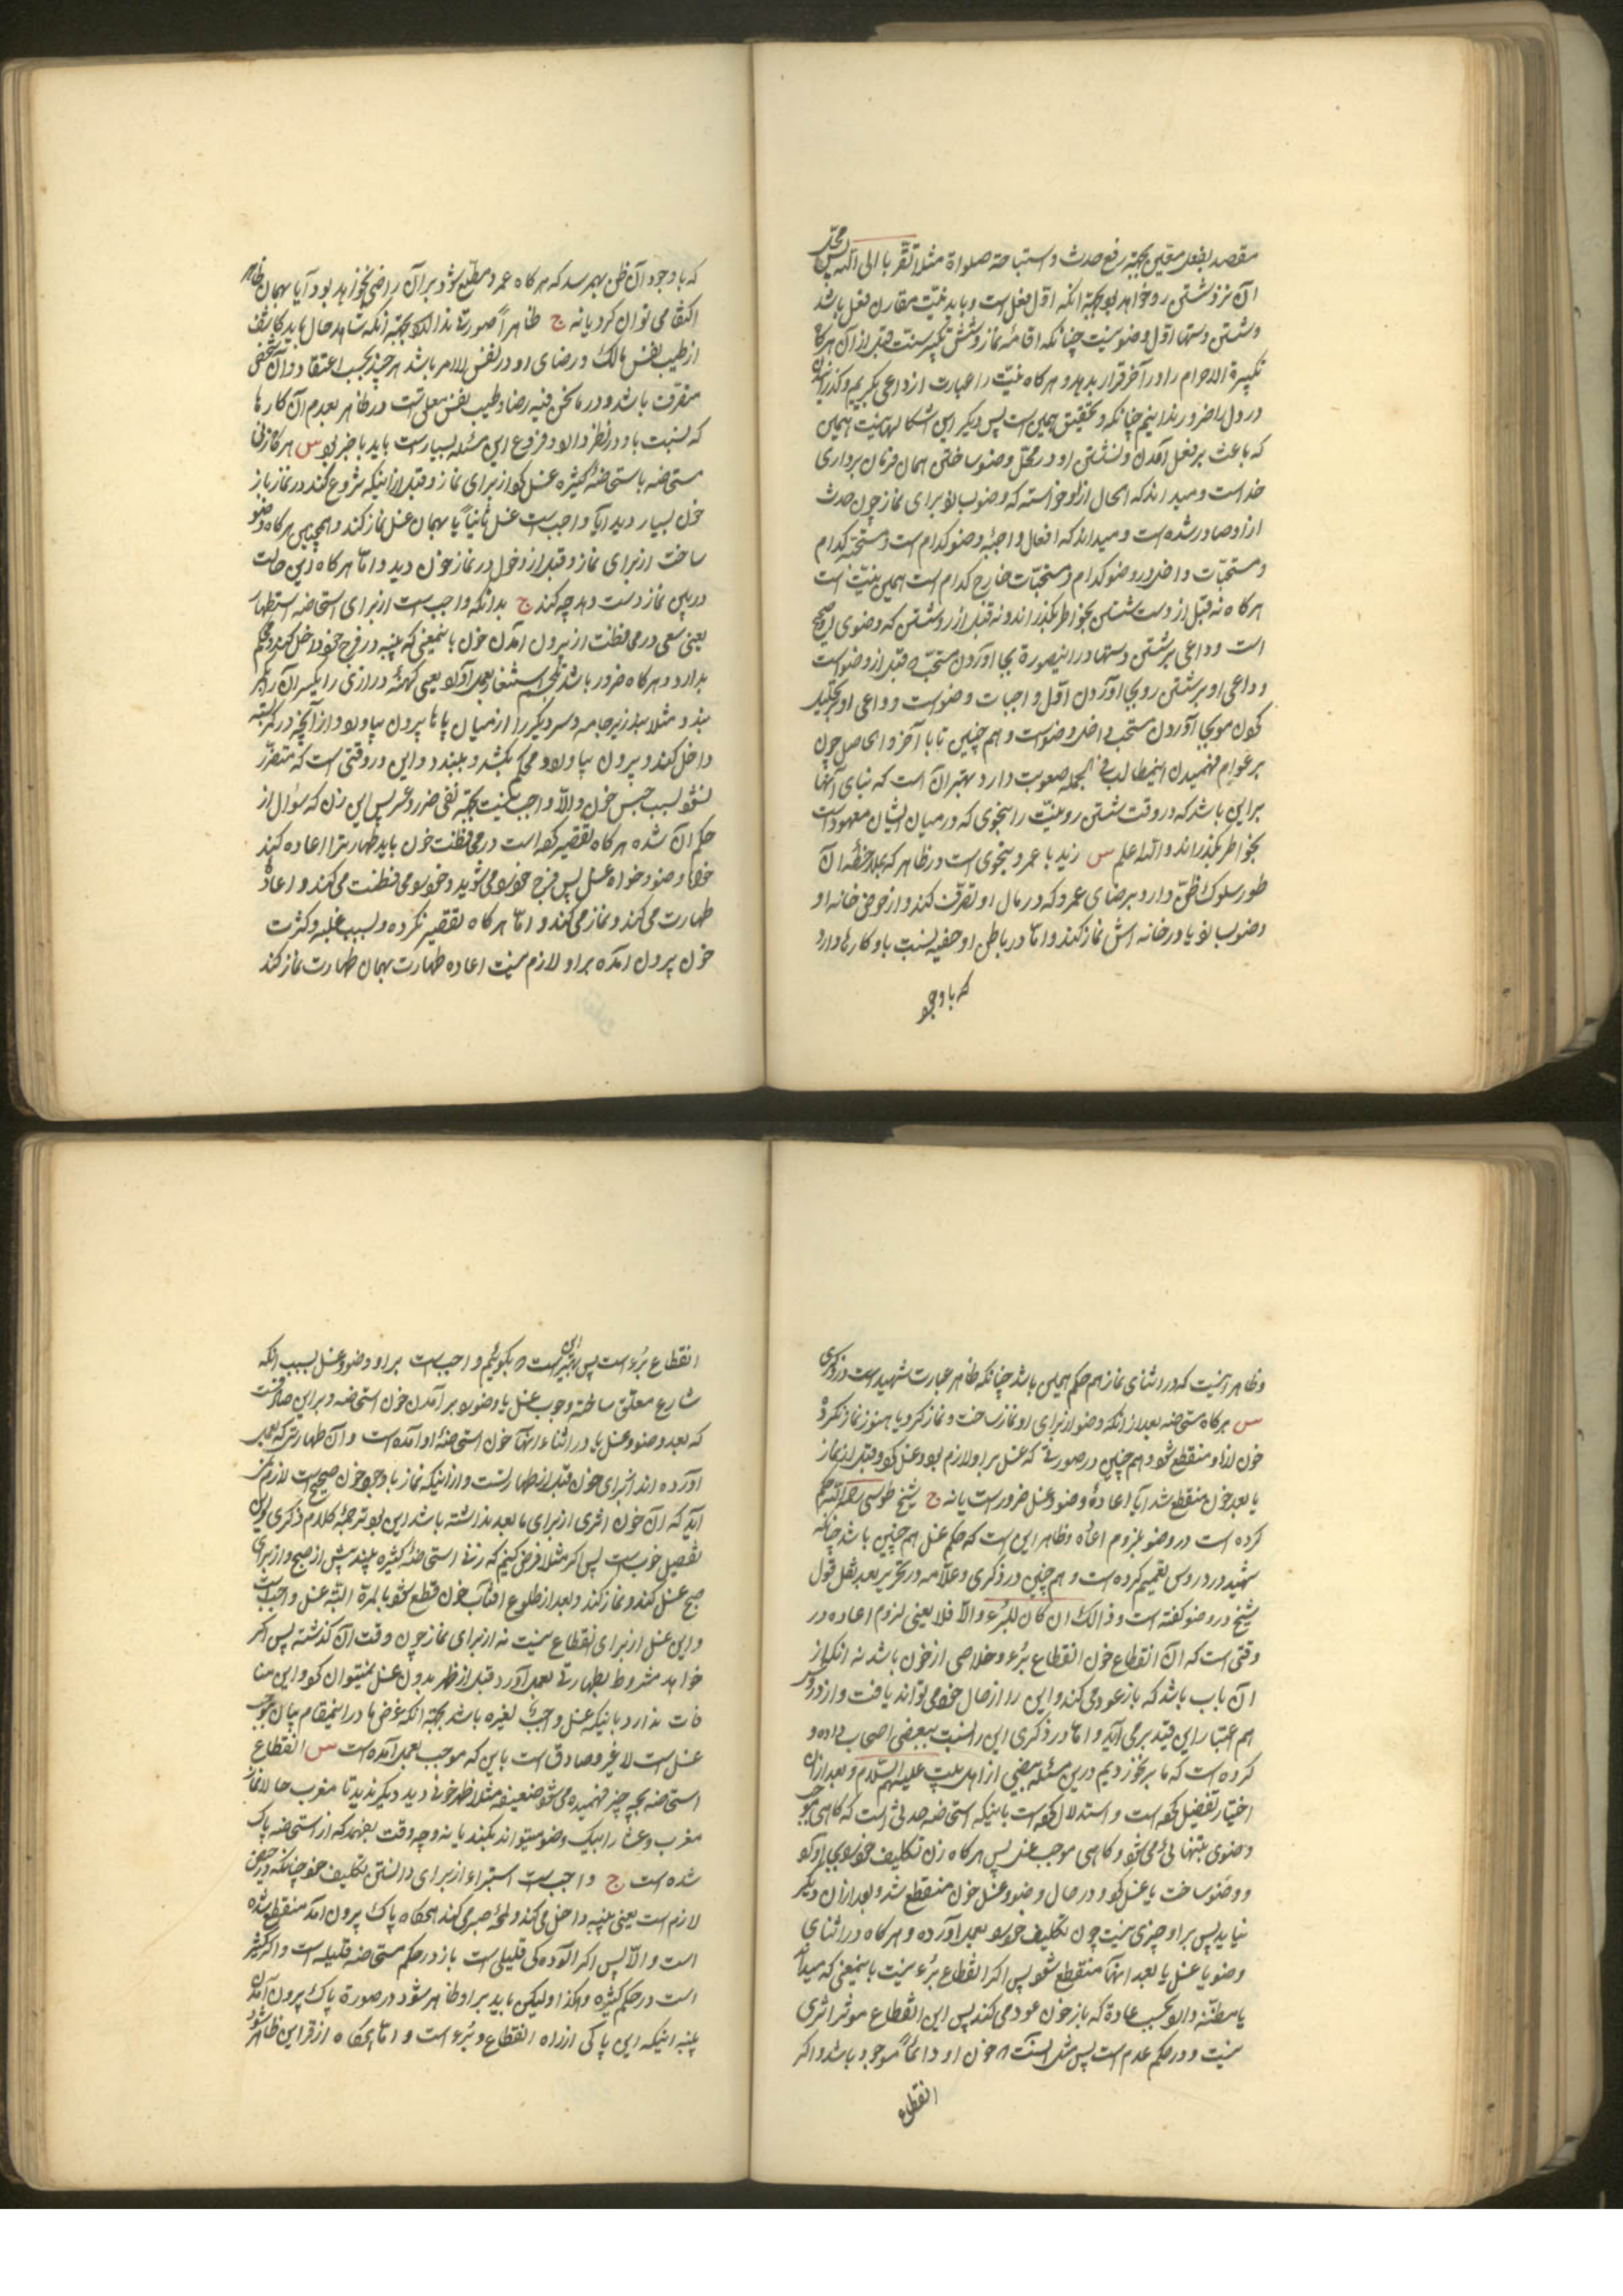 مقصد بفعل معین بجهة رفع حدث و استباحة صلواة مثلا تقربا الی الله پس محل
ان نزد شستن رو خواهد بود بجهة انکه اول فعل است و باید نیت مقارن فعل باشد
و شستن دستها اول وضو نیست چنانکه اقامهٔ نماز و شش تکبیر سنت قبل از آن هرگاه
تکبیرة الاحرام را در آخر قرار بدهد و هر کاه نیت را عبارت از داعی بکیریم و کذرانیدن
در دل را ضرور ندانیم چنانکه تحقیق همین است پس دیکر این اشکالها نیست همین
که باعث بر فعل آمدن و نشستن او در محل وضو ساختن همان فرمان برداری
خداست و میداند که الحال از او خواسته که وضو بسازد برای نماز چون حدث
از او صادر شده است و میداند که افعال واجبهٔ وضو کدام است و مستحبه کدام
و مستحبات داخل در وضو کدام و مستحبات خارج کدام است همین نیت است
هر کاه نه قبل از دست شستن بخواطر بکذراند و نه قبل از رو شستن که وضوی او صحیح
است و داعی بر شستن دستها در اینصورة بجا اوردن مستحب قبل از وضوست
و داعی او بر شستن رو بجا اوردن اول واجبات وضوست و داعی او بر تخلیل
کردن مو بجا آوردن مستحب داخل وضوست و هم چنین تا باخر و الحاصل چون
بر عوام فهمیدن اینمطالب فی الجمله صعوبت دارد و بهتر آن است که بنای آنها
بر این باشد که در وقت شستن رو نیت را بنحوی که در میان ایشان معهود است
بخواطر بکذرانند و الله اعلم س زید با عمرو بنحوی است در ظاهر که بملاحظهٔ ان
طور سلوک ظن دارد برضای عمرو که در مال او تصرف کند و از حوض خانه او
وضو بسازد یا در خانه اش نماز کند و اما در باطن او خفیه نسبت باو کارها دارد
که با وجود
که با وجود آن ظن بهم رسد که هر کاه عمرو مطلع شود بر آن راضی نخواهد بود آیا بهمان ظاهر
اکتفا می توان کرد یا نه ج ظاهراً صورت ندارد بجهة آنکه شاهد حال باید کاشف
از طیب نفس مالک و رضای او در نفس الامر باشد هر چند بحسب اعتقاد آن شخص
متصرف باشد و در ما نحن فیه رضا و طیب نفس معلق است در ظاهر بعدم آن کارها
که نسبت باو در نظر دارد و فروع این مسئله بسیارست باید با خبر بود س هر کاه زنی
مستحاضه باستحاضهٔ کثیره غسل کرد از برای نماز و قبل از اینکه شروع کند در نماز باز
خون بسیار دید ایا واجبست غسل ثانیاً یا بهمان غسل نماز کند و همچنین هر کاه وضو
ساخت از برای نماز و قبل از دخول در نماز خون دید و اما هر کاه این حالت
در بین نماز دست دهد چه کند ج بدانکه واجب است از برای استحاضه استظهار
یعنی سعی در محافظت از بیرون آمدن خون باینمعنی که پنبه در فرج خود داخل کند و محکم
بدارد و هر کاه ضرور باشد تلجم و استثفار بعمل آورد یعنی کهنهٔ درازی را یکسر آن را بکمر
ببندد مثلا ببند زیر جامه و سر دیکر را از میان پاها بیرون بیاورد و از آنچه در کمر بسته
داخل کند و بیرون بیاورد و محکم بکشد و ببندد و این در وقتی است که متضرر
نشود بسبب حبس خون و الا واجب نیست بجهة نفی ضرر و عسر پس این زن که سؤال از
حکم ان شده هر کاه تقصیر کرده است در محافظت خون باید طهارت را اعاده کند
خواه وضو و خواه غسل پس فرج خود را می شوید و خود را محافظت می کند و اعادهٔ
طهارت می کند و نماز می کند و اما هر کاه تقصیر نکرده و بسبب غلبه و کثرت
خون بیرون آمده بر او لازم نیست اعاده طهارت بهمان طهارت نماز کند
و ظاهر اینست که در اثنای نماز هم حکم همین باشد چنانکه ظاهر عبارت شهید است در ذکری
س هر کاه مستحاضه بعد از انکه وضو از برای او نماز ساخت و نماز کرد و یا هنوز نماز نکرده
خون از او منقطع شود و هم چنین در صورتی که غسل بر او لازم بود و غسل کرد و قبل از نماز
یا بعد خون منقطع شد آیا اعادهٔ وضو و غسل ضرور است یا نه ج شیخ طوسی رحمه الله حکم
کرده است در وضو بلزوم اعاده و ظاهر این است که حکم غسل هم چنین باشد چنانکه
شهید در دروس تعمیم کرده است و هم چنین در ذکری و علامه در تحریر بعد نقل قول
شیخ در وضو کفته است و ذالک ان کان للبُرء و الا فلا یعنی لزوم اعاده در
وقتی است که ان انقطاع خون انقطاع بُرء و خلاصی از خون باشد نه انکه از
ان باب باشد که باز عود می کند و این را از حال خود می تواند یافت و از دروس
هم اعتبار این قید بر می آید و اما در ذکری این را نسبت ببعضی اصحاب داده و
کرده است که ما بر نخوردیم در این مسئله بنصی از اهل بیت علیهم السلام و بعد از ان
اختیار تفصیل کرده است و استدلال کرده است باینکه استحاضه حدثی است که کاهی موجب
وضوی بتنهائی می شود و کاهی موجب غسل پس هر کاه زن تکلیف خود را بجا آورد
و وضو ساخت یا غسل کرد و در حال وضو و غسل خون منقطع شد و بعد از ان دیکر
نیاید پس بر او چیزی نیست چون تکلیف خود را بعمل اورده و هر کاه در اثنای
وضو یا غسل یا بعد انها منقطع شود پس اکر انقطاع بُرء نیست باینمعنی که میداند
یا مظنه دارد بحسب عادة که باز خون عود می کند پس این انقطاع موثر اثری
نیست و در حکم عدم است پس مثل اینست که خون او دائماً موجود باشد و اکر
انقطاع
انقطاع بُرء است پس بهتر این است که بکوئیم واجب است بر او وضو و غسل بسبب انکه
شارع معلق ساخته وجوب غسل یا وضو را بر آمدن خون استحاضه و بر این صادقست
که بعد وضو و غسل یا در اثناء انها خون استحاضهٔ او آمده است و آن طهارتی که بعمل
آورده اند از برای خون قبل از طهارتست و از اینکه نماز با وجود خون صحیح است لازم نمی
آید که ان خون اثری از برای ما بعد نداشته باشد این بود ترجمهٔ کلام ذکری و این
تفصیل خوب است پس اکر مثلا فرض کنیم که زنی استحاضهٔ کثیره بیند پیش از صبح و از برای
صبح غسل کند و نماز کند و بعد از طلوع افتاب خون قطع شود بالمرة البته غسل واجب است
و این غسل از برای انقطاع نیست نه از برای نماز چون وقت آن کذشته پس اکر
خواهد مشروط بطهارتی بعمل آورد قبل از ظهر بدون غسل نمیتوان کرد و این منا
فات ندارد با اینکه غسل واجب لغیره باشد بجهة انکه غرض ما در اینمقام بیان موجب
غسل است لا غیر و صادق است باین که موجب بعمل آمده است س انقطاع
استحاضه بچه چیز فهمیده می شود ضعیفه مثلا ظهر خونی دید دیکر ندید تا مغرب حالا نماز
مغرب و عشا را بیک وضو میتواند بکند یا نه و چه وقت بفهمد که از استحاضه پاک
شده است ج واجب است استبراء از برای دانستن تکلیف خود چنانکه در حیض
لازم است یعنی پنبه داخل می کند و لمحهٔ صبر می کند هرکاه پاک بیرون امد منقطع شده
است و الا پس اکر الودکی قلیلی است باز در حکم مستحاضه قلیله است و اکر بیشتر
است در حکم کثیره و هکذا و لیکن باید بر او ظاهر شود در صورة پاک بیرون آمدن
پنبه اینکه این پاکی از راه انقطاع و بُرء است و اما هرکاه از قراین ظاهر شود